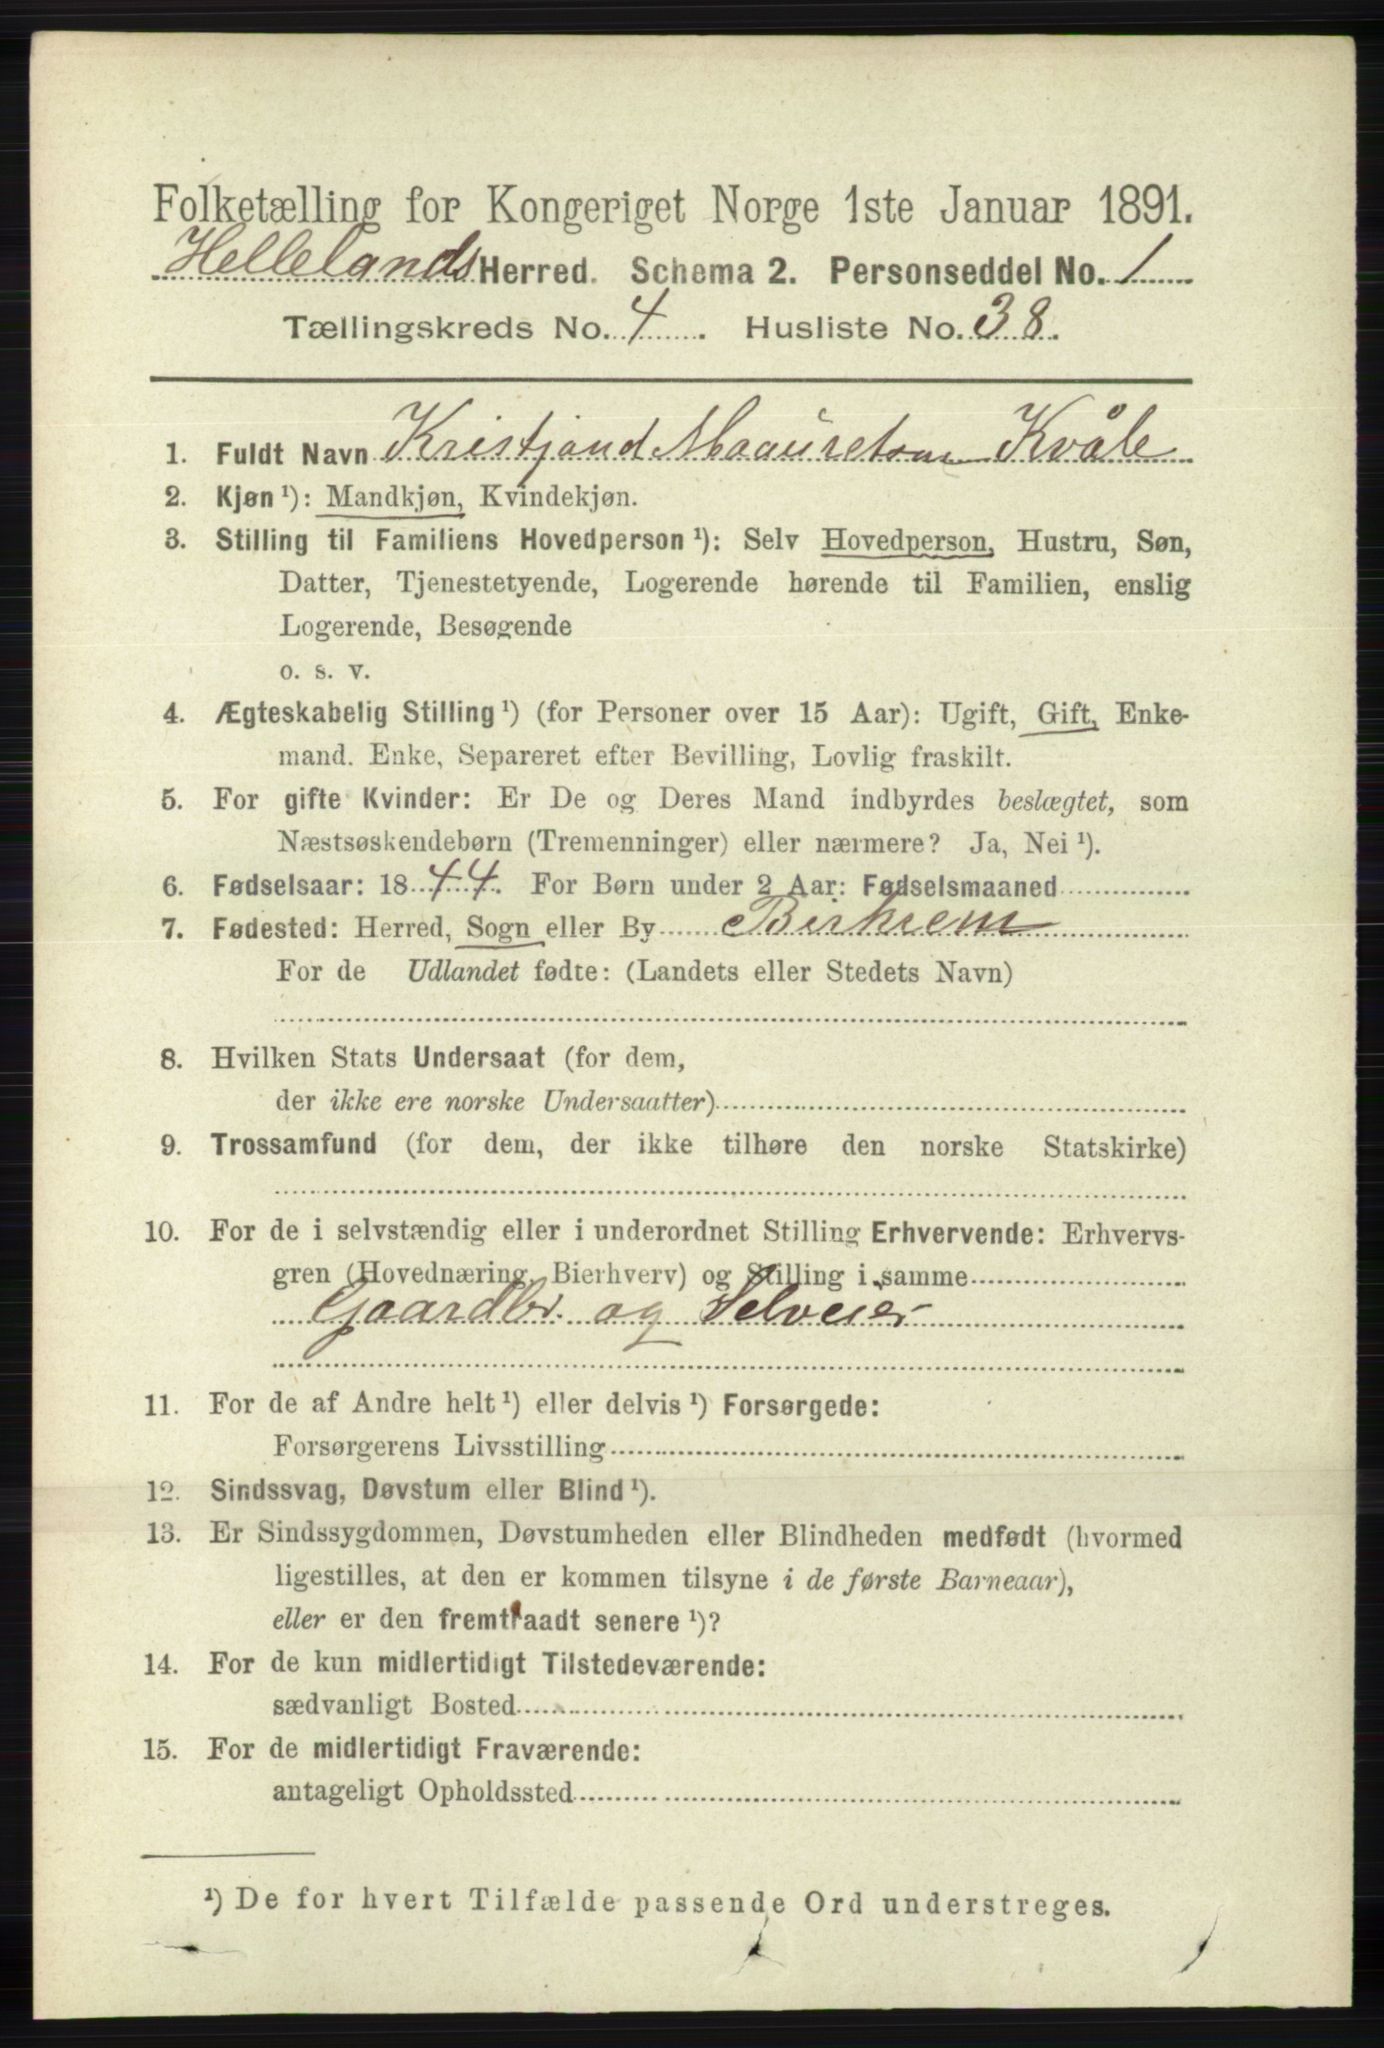 Folketælling for Kongeriget Norge 1ste Januar 1891.
Hellelands Herred. Schema 2. Personseddel No. 1
Tællingskreds No. 4. Husliste No. 38.
1. Fuldt Navn Kristjand Maauretsen Kvåle
2. Kjøn ¹): Mandkjøn, Kvindekjøn.
3. Stilling til Familiens Hovedperson ¹): Selv Hovedperson, Hustru, Søn,
Datter, Tjenestetyende, Logerende hørende til Familien, enslig
Logerende, Besøgende
o. s. v.
4. Ægteskabelig Stilling ¹) (for Personer over 15 Aar): Ugift, Gift, Enke-
mand. Enke, Separeret efter Bevilling, Lovlig fraskilt.
5. For gifte Kvinder: Er De og Deres Mand indbyrdes beslægtet, som
Næstsøskendebørn (Tremenninger) eller nærmere? Ja, Nei ¹).
6. Fødselsaar: 1844. For Børn under 2 Aar: Fødselsmaaned
7. Fødested: Herred, Sogn eller By Birkrem
For de Udlandet fødte: (Landets eller Stedets Navn)
8. Hvilken Stats Undersaat (for dem,
der ikke ere norske Undersaatter)
9. Trossamfund (for dem, der ikke tilhøre den norske Statskirke)
10. For de i selvstændig eller i underordnet Stilling Erhvervende: Erhvervs-
gren (Hovednæring, Bierhverv) og Stilling i samme
Gaardbr. og Selveier
11. For de af Andre helt ¹) eller delvis ¹) Forsørgede:
Forsørgerens Livsstilling
12. Sindssvag, Døvstum eller Blind ¹).
13. Er Sindssygdommen, Døvstumheden eller Blindheden medfødt (hvormed
ligestilles, at den er kommen tilsyne i de første Barneaar),
eller er den fremtraadt senere ¹)?
14. For de kun midlertidigt Tilstedeværende:
sædvanligt Bosted
15. For de midlertidigt Fraværende:
antageligt Opholdssted
¹) De for hvert Tilfælde passende Ord understreges.